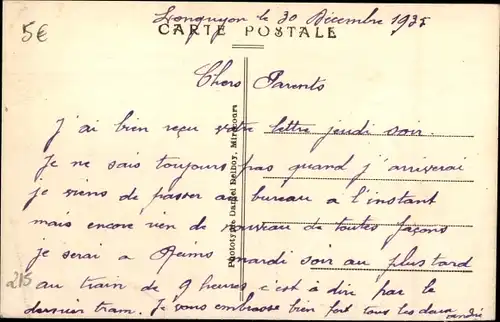 Longuyon le 30 Décembre 1935
5€
CARTE POSTALE
Chers Parents
J'ai bien reçu votre lettre jeudi soir.
Je ne sais toujours pas quand j'arriverai
je viens de passer au bureau a l'instant
mais encore rien de nouveau de toutes façons
je serai a Reims mardi soir au plus tard
215
au train de 9 heures c'est à dire par le
dernier tram. Je vous embrasse bien fort tous les deux
André
Phototypie Daniel Delboy, Mirecourt